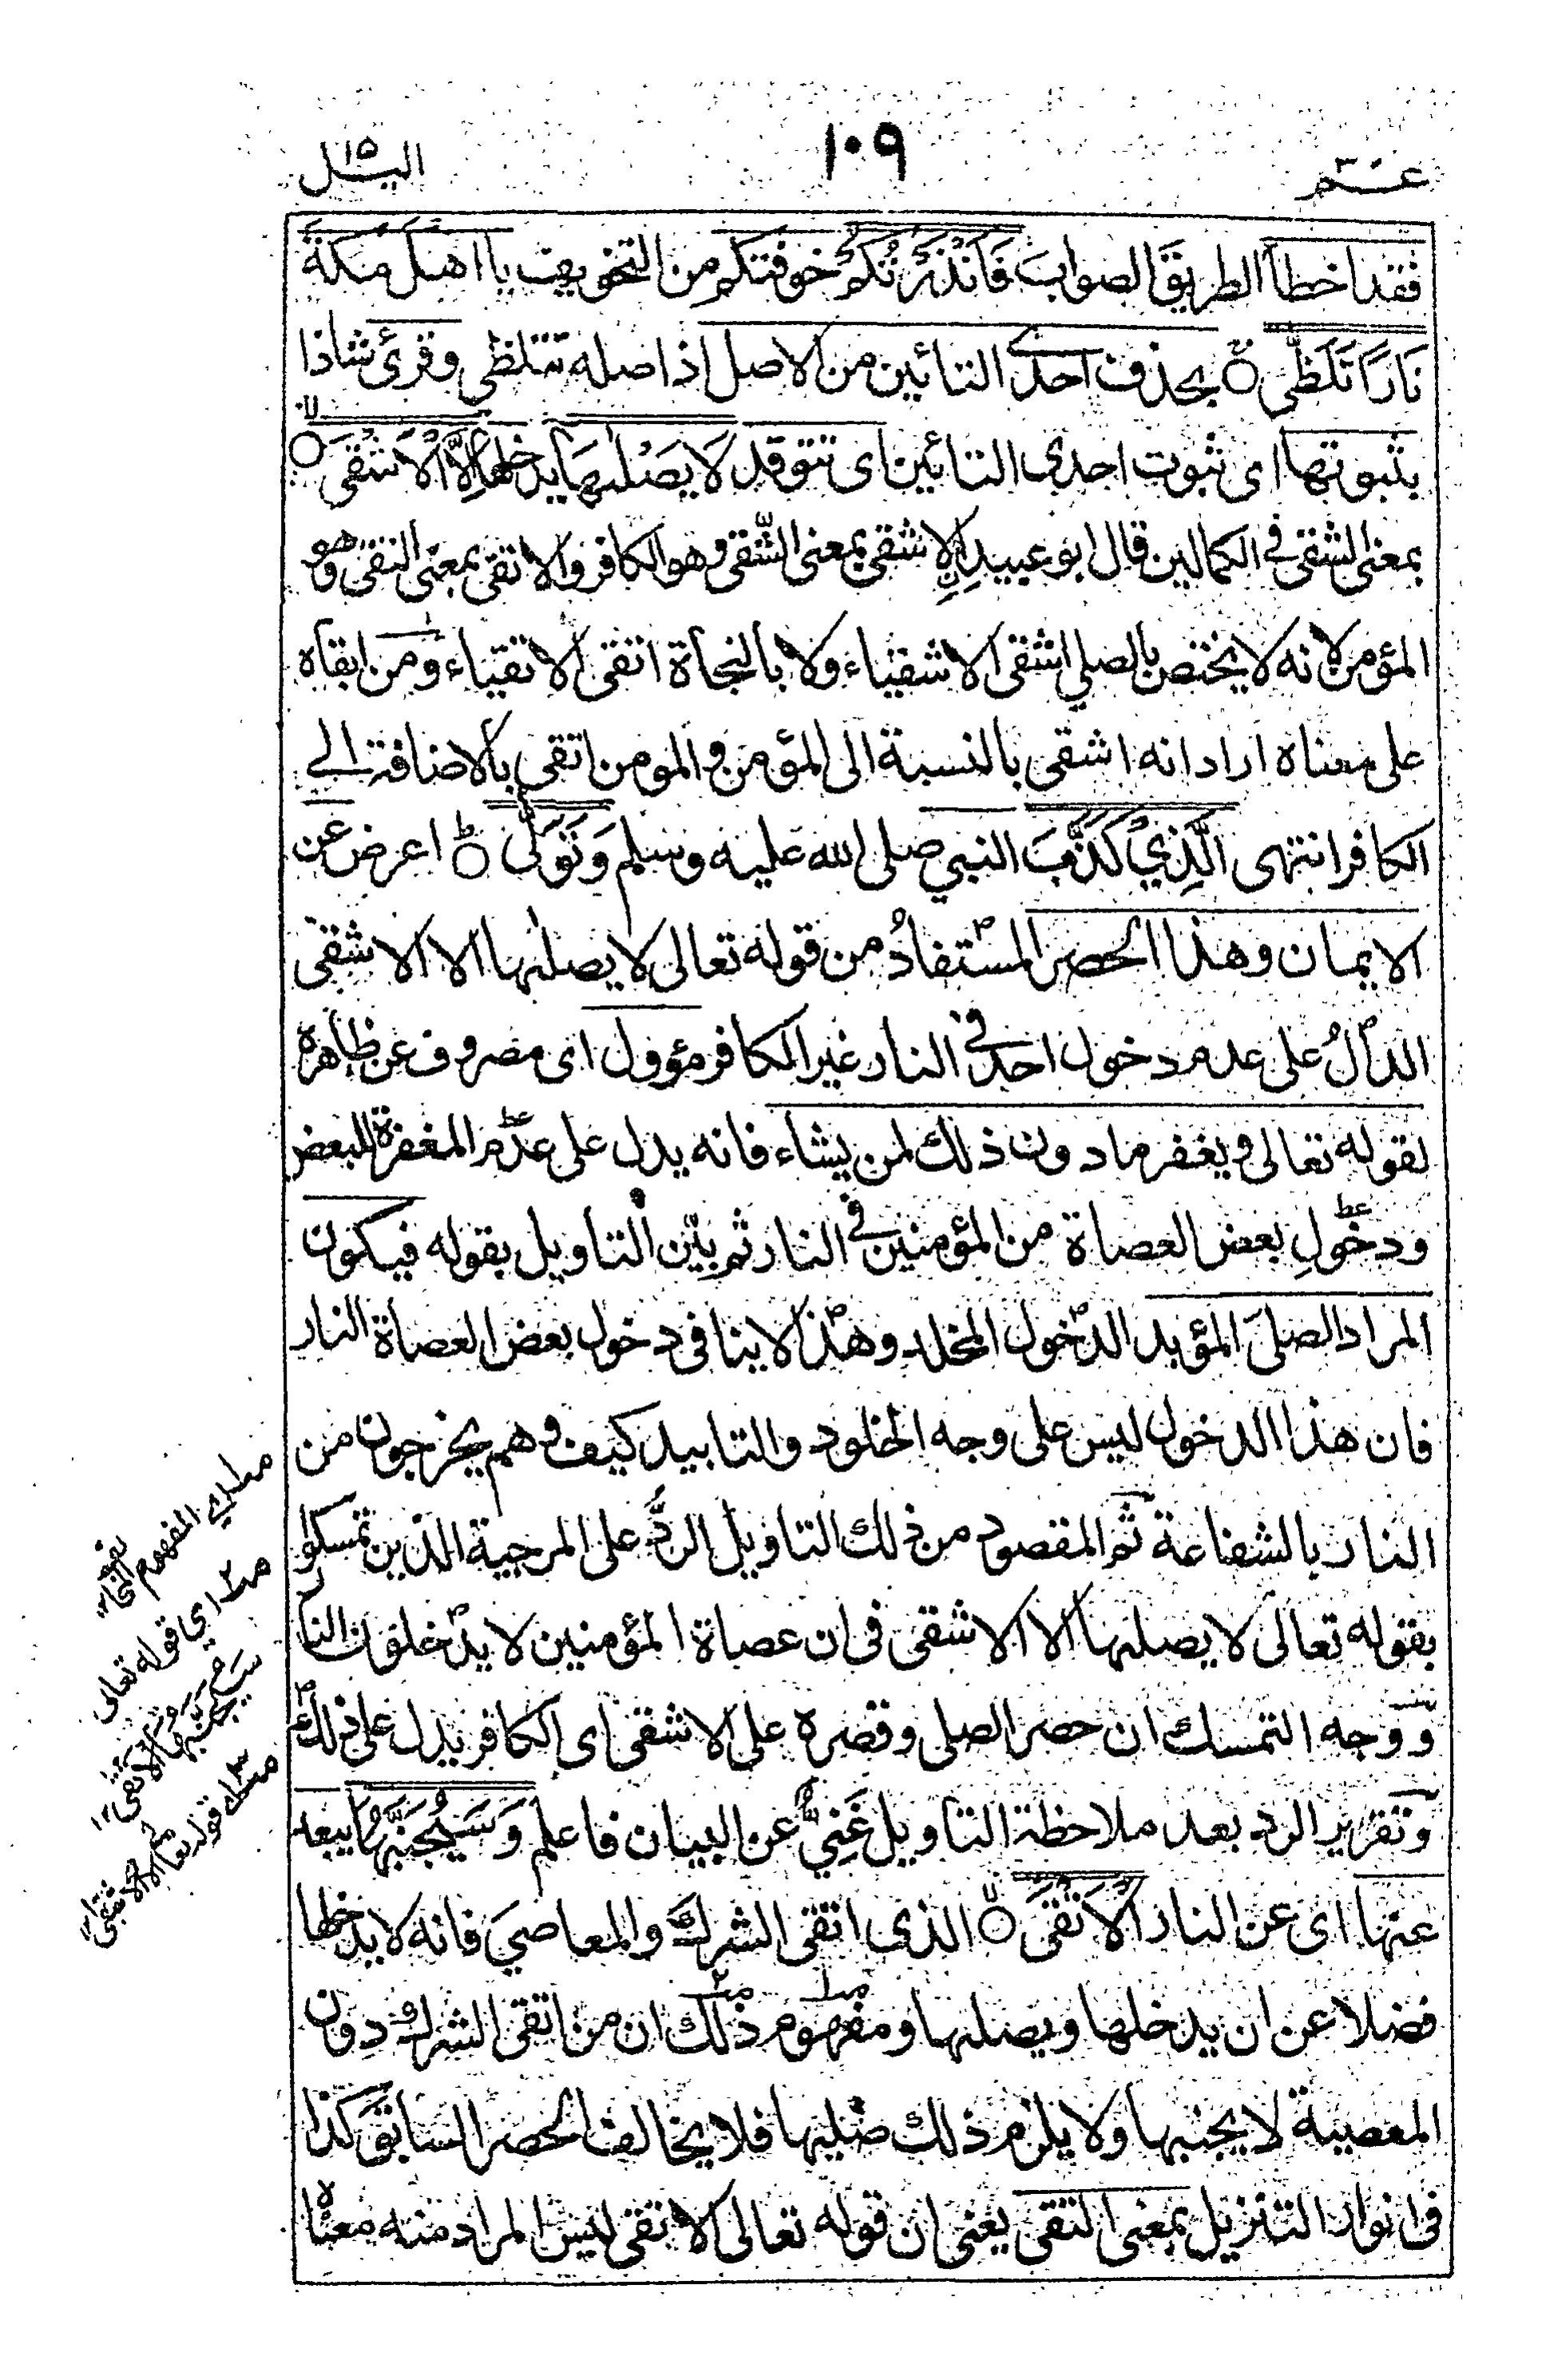 عم ٣٠
١٠٩
اليل
فقد اخطأ الطريق الصواب فَاَنْذَرْتُكُمْ خوفتكم من التخويف يا اهل مكة
نَارًا تَلَظّٰى بحذف احدى التائين من الاصل اذ اصله تتلظى وقرئ شاذا
بثبوتها اى ثبوت احدى التائين اى تتوقد لَا يَصْلٰىهَا يدخلها اِلَّا الْاَشْقَى
بمعنى الشقى فى الكمالين قال ابو عبيدة الاشقى بمعنى الشَّقى وهو الكافر والاتقى بمعنى التقى وهو
المؤمن لانه لا يختص بالصلي اشقى الاشقياء ولا بالنجاة اتقى الاتقياء ومن ابقاه
على معناه اراد انه اشقى بالنسبة الى المؤمن والمومن اتقى بالاضافة الى
الكافر انتهى الَّذِيْ كَذَّبَ النبي صلى الله عليه وسلم وَتَوَلّٰى اعرض عن
الايمان وهذا الحصر المستفادُ من قوله تعالى لا يصلىها الا الاشقى
الدالُ على عدم دخول احد فى النار غير الكافر مؤول اى مصروف عن ظاهره
بقوله تعالى ويغفر ما دون ذلك لمن يشاء فانه يدل على عدم المغفرة للبعض
ودخولِ بعض العصاة من المؤمنين فى النار ثم بيّن التاويل بقوله فيكون
المراد الصلى المؤبد الدخول المخلد وهذا لا ينافى دخول بعض العصاة النار
فان هذا الدخول ليس على وجه الخلود والتابيد كيف وهم يخرجون من
النار بالشفاعة ثم المقصود من ذلك التاويل الردُّ على المرجية الذين تمسكوا
بقوله تعالى لا يصلىها الا الاشقى فى ان عصاة المؤمنين لا يدخلون النار
ووجه التمسك ان حصر الصلى وقصره على الاشقى اى الكافر يدل على ذلك
وتقرير الرد بعد ملاحظة التاويل غَنِيٌّ عن البيان فاعلم وَسَيُجَنَّبُهَا يبعد
عنها اى عن النار الْاَتْقَى الذى اتقى الشرك والمعاصي فانه لا يدخلها
فضلا عن ان يدخلها ويصلىها ومفهوم ذلك ان من اتقى الشرك دون
المعصية لا يجنبها ولا يلزم ذلك صليها فلا يخالف الحصر السابق كذا
فى انوار التنزيل بمعنى التقى يعنى ان قوله تعالى الاتقى ليس المراد منه معناه
اي المفهوم
اي قوله تعالى
سَيُجَنَّبُهَا الْاَتْقَى